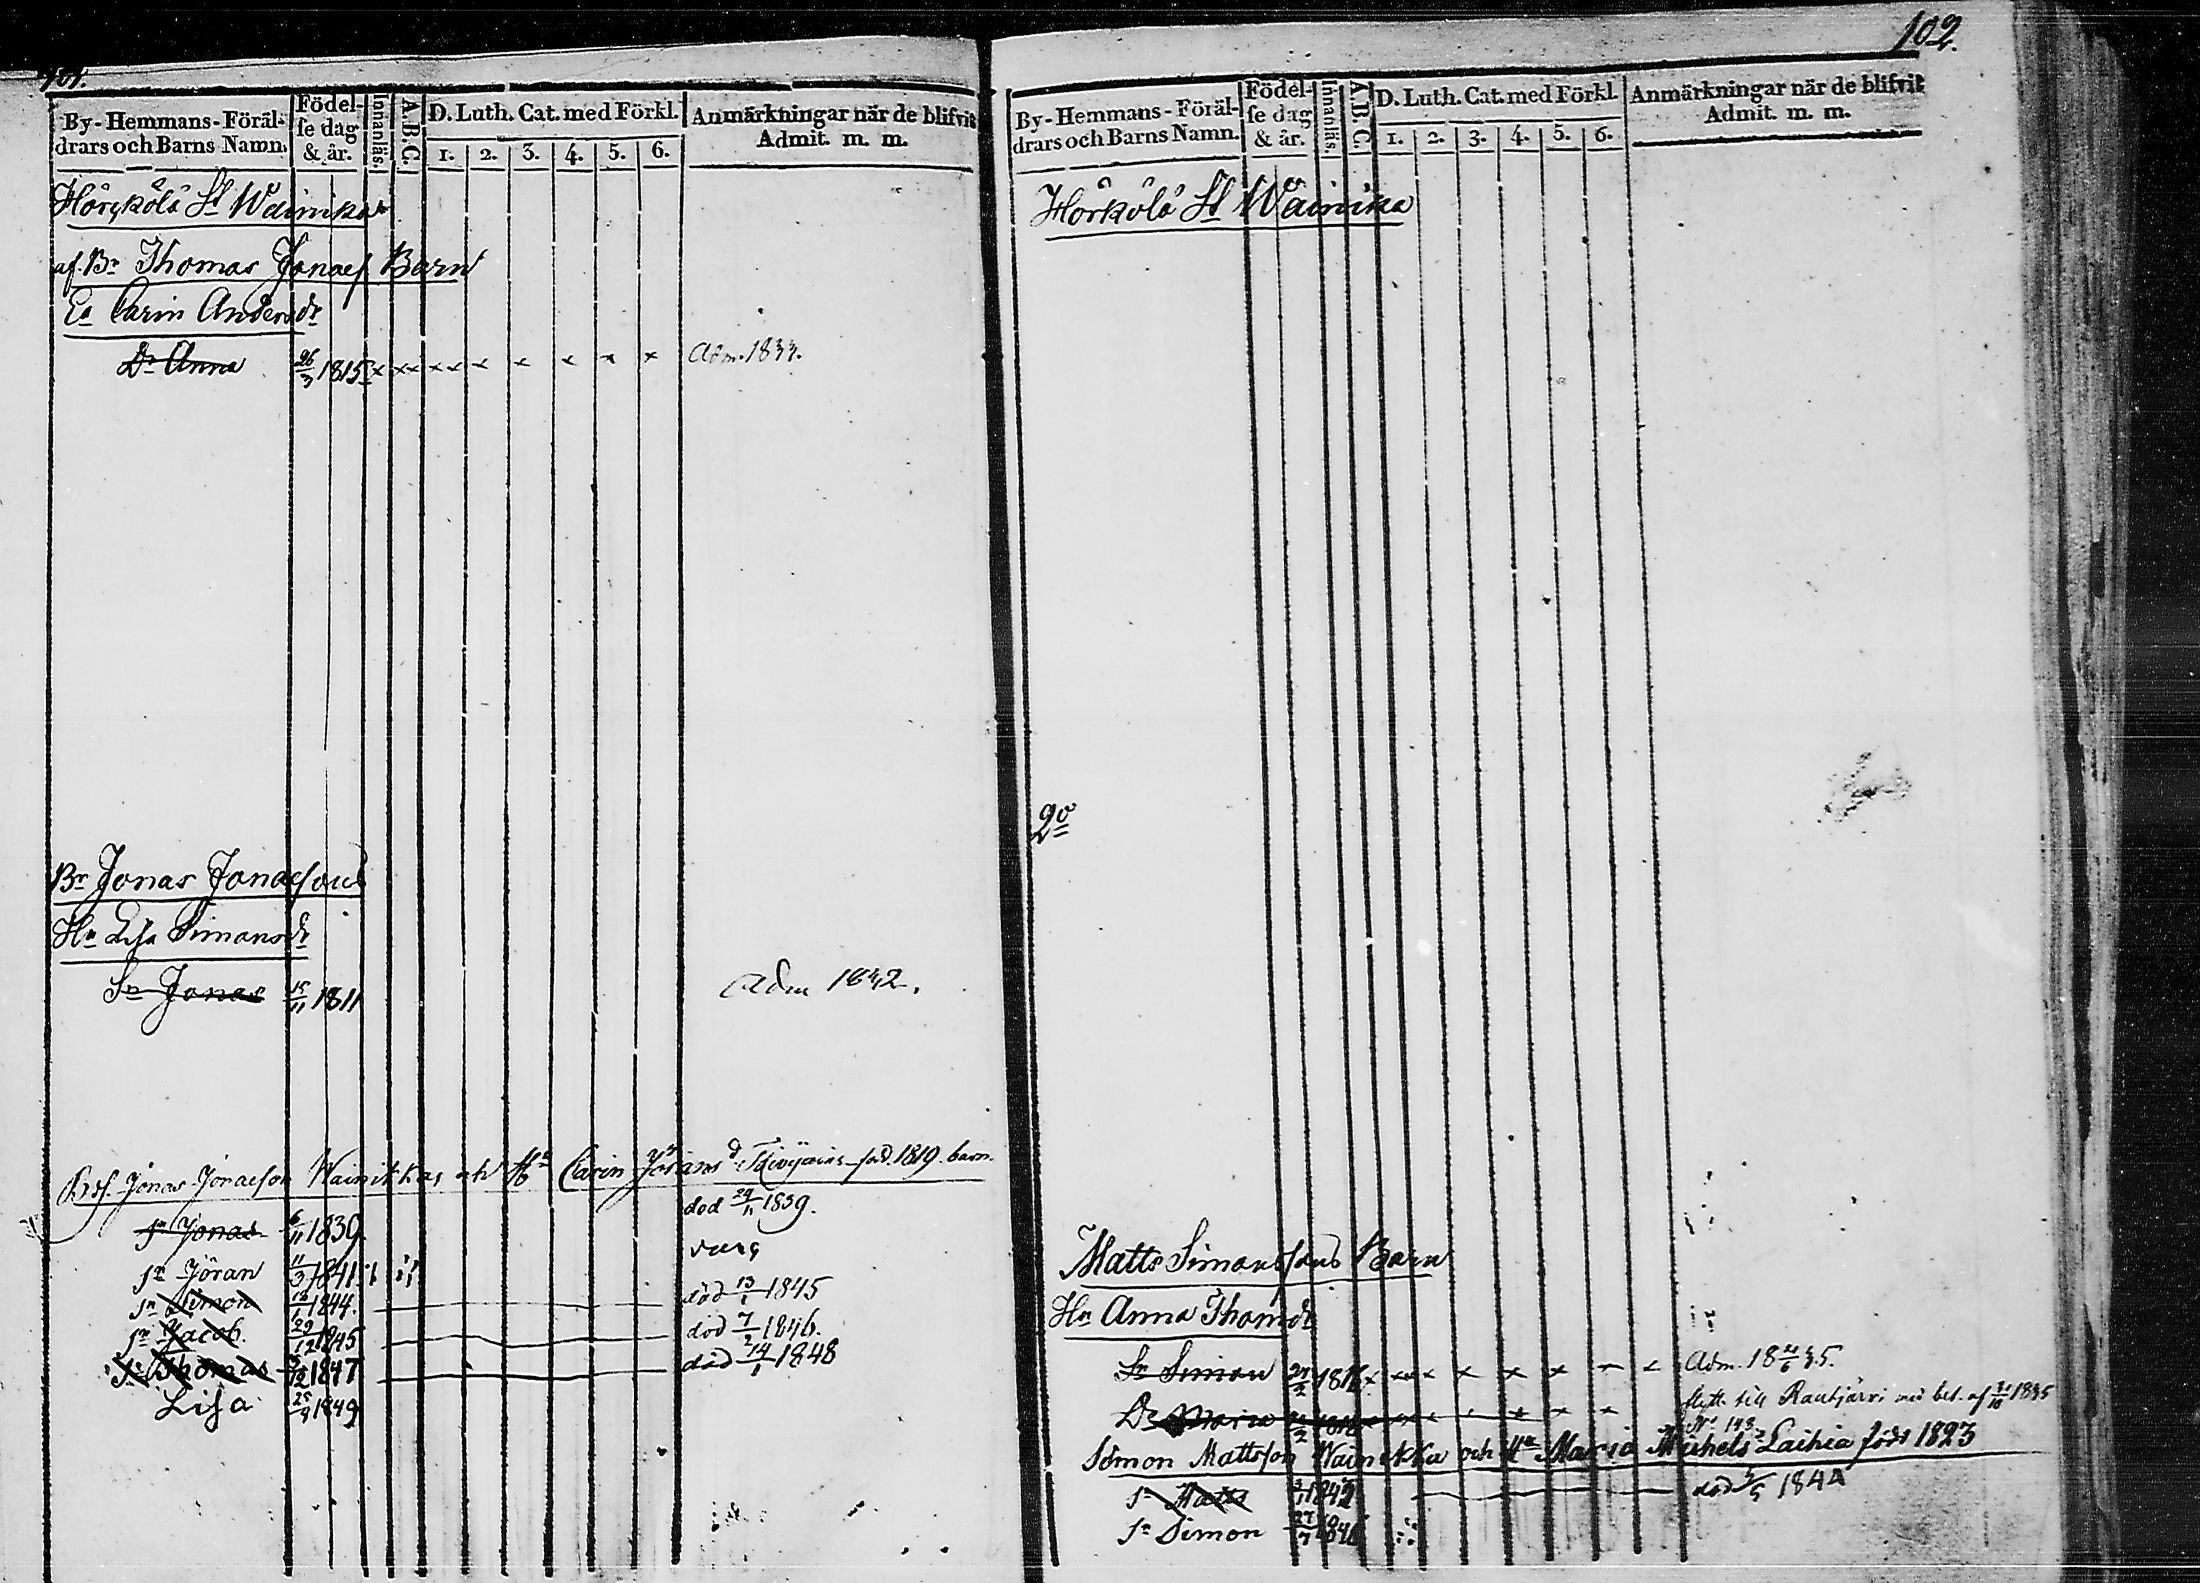 101.
By-Hemmans-Föräl-
drars och Barns Namn.
Födel-
se dag
& år.
Innanläs.
A.B.C.
D. Luth. Cat. med Förkl.
1. 2. 3. 4. 5. 6.
Anmärkningar när de blifvit
Admit. m. m.
Hörkölä Wäinikas
af. Br Thomas Jonaes Barn
Ea Carin Andersdr
Dr Anna 26/3 1815 x xx xx x x x x x Adm. 1833.
Br Jonas Jonaesons
Hu Lisa Simonsdr
Sn Jonas 15/11 1811 Adm 1832.
Jonas Jonaeson Wainikkas Hu Carin född 1819. barn.
Sn Jonas 6/11 1839 död 29/11 1839.
Sn Jöran 11/3 1841
Sn Simon 1844. död 13/1 1845
Sn Jacob. 29/12 1845 död 7/2 1846.
Sn Thomas 1847 död 14/1 1848
Lisa 25/9 1849
102.
By-Hemmans-Föräl-
drars och Barns Namn.
Födel-
se dag
& år.
Innanläs.
A.B.C.
D. Luth. Cat. med Förkl.
1. 2. 3. 4. 5. 6.
Anmärkningar när de blifvit
Admit. m. m.
Hörkölä Wäinika
2o
Matts Simonssons Barn
Hu Anna Thomdr
Sn Simon Adm. 1835.
Dr Maria flytt. till Rautjärvi med bet. af 1835
No 143
Simon Mattsson Wainikka och Hu Maria Michelsdr Laihia född 1823
Sn Matts 1842 död 1844
Sn Simon 27/7